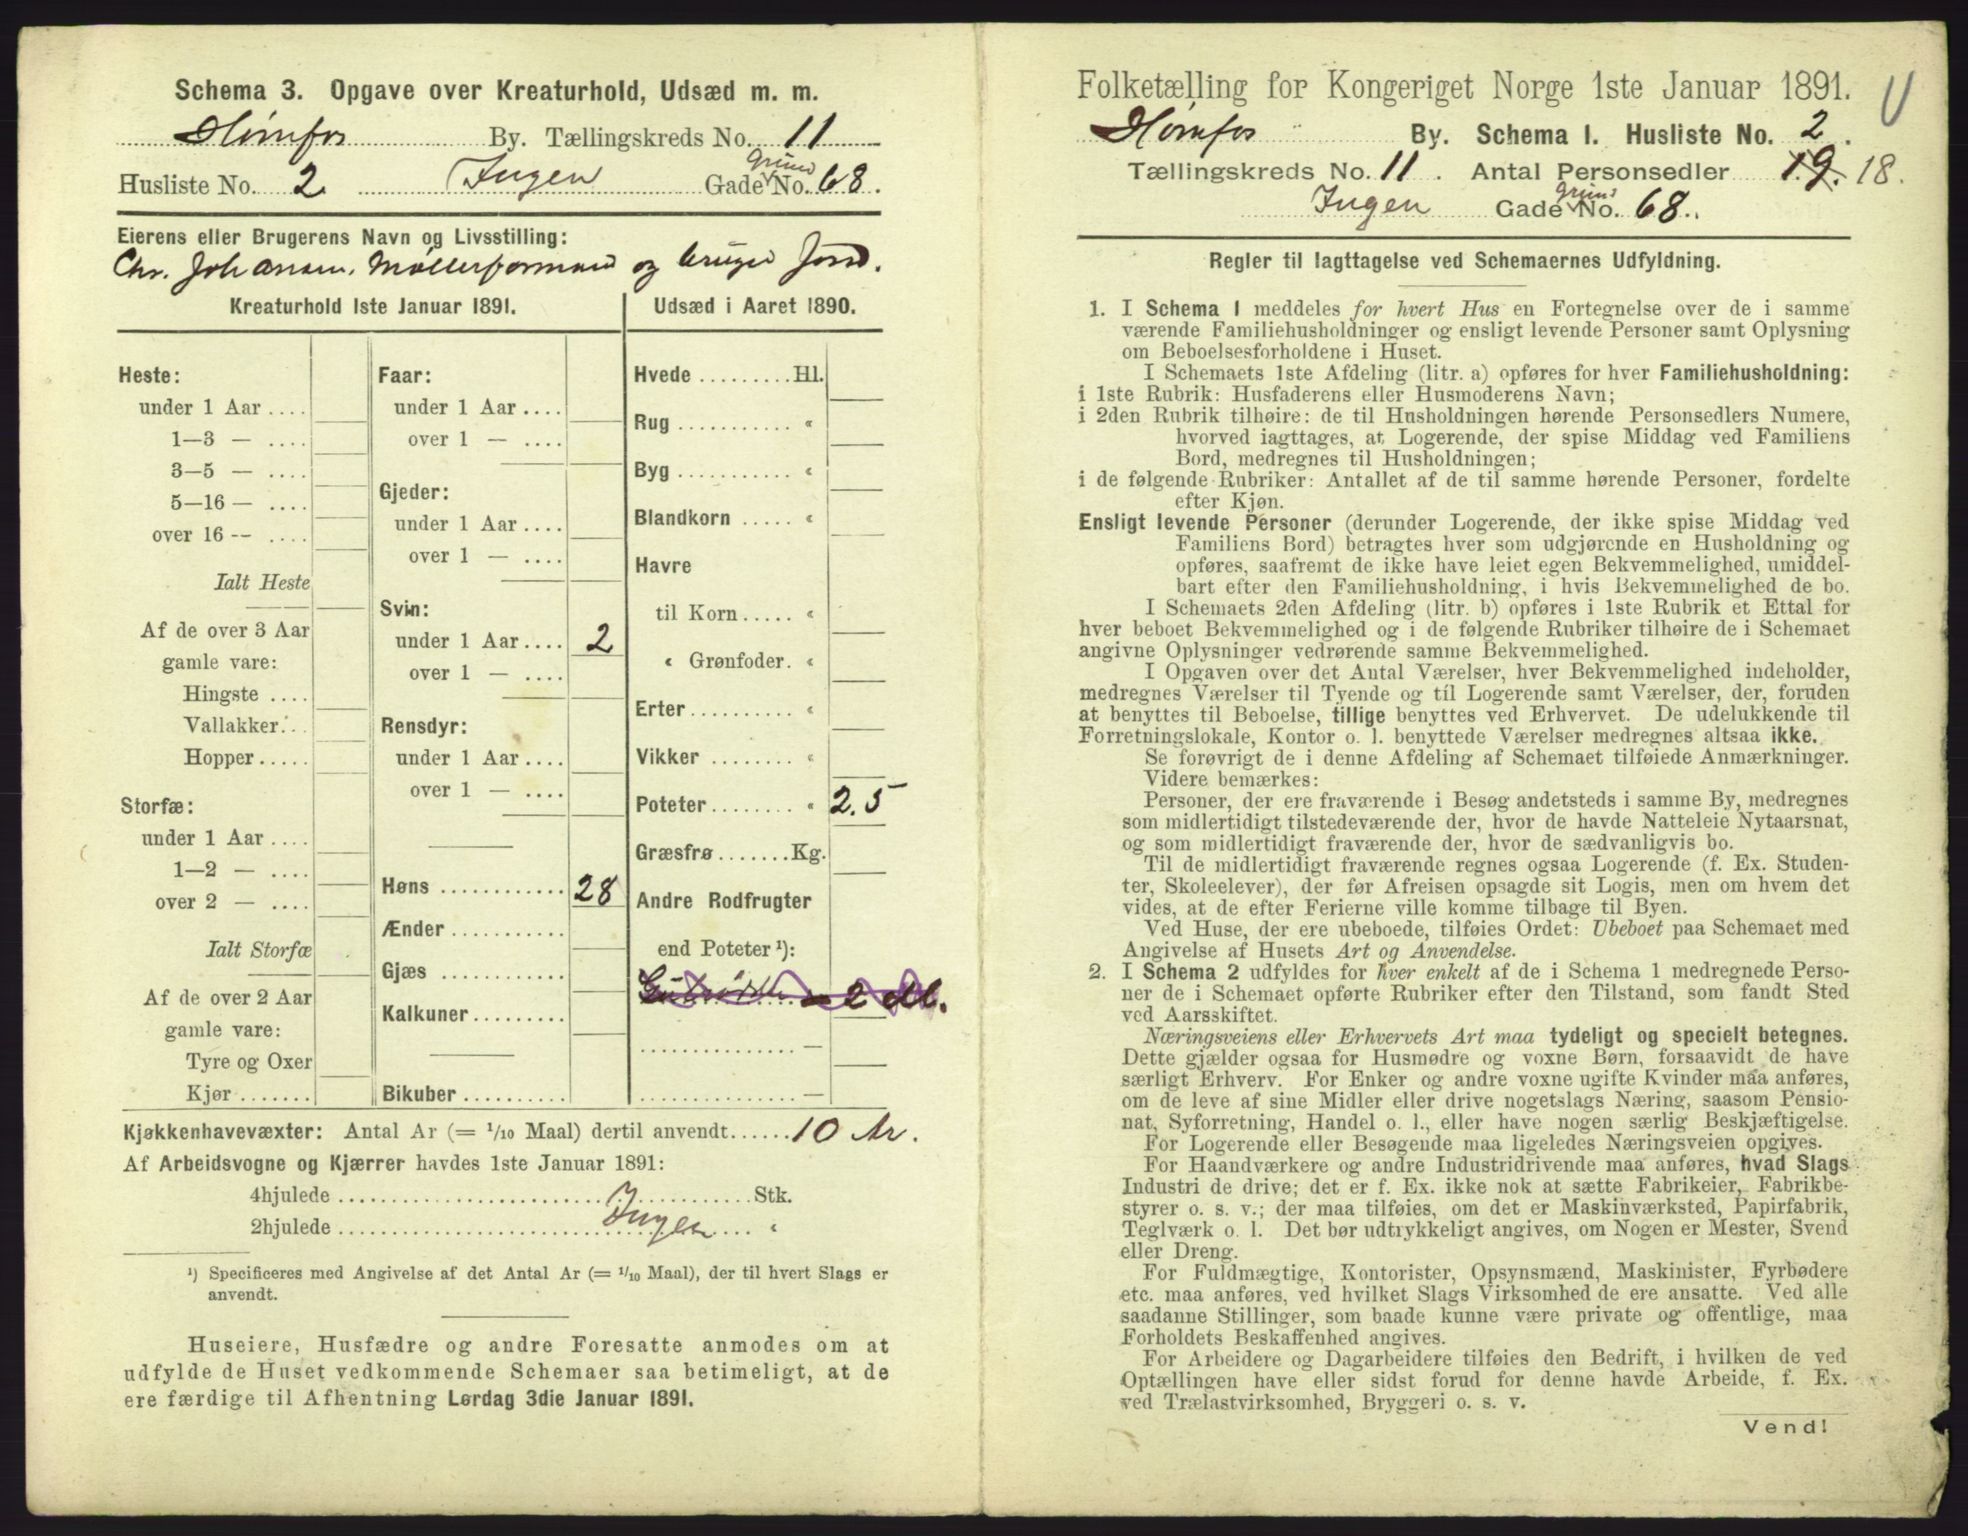 Schema 3. Opgave over Kreaturhold, Udsæd m. m.
Hønefos By. Tællingskreds No. 11
Husliste No. 2 Ingen Gade Grund No. 68.
Eierens eller Brugerens Navn og Livsstilling:
Chr. Johansen. Møllerformand og bruger Jord.
Kreaturhold 1ste Januar 1891.
Heste:
under 1 Aar ....
1—3 — ....
3—5 — ....
5—16 — ....
over 16 -- ....
Ialt Heste
Af de over 3 Aar
gamle vare:
Hingste ....
Vallakker...
Hopper.....
Storfæ:
under 1 Aar ....
1—2 — ....
over 2 — ....
Ialt Storfæ
Af de over 2 Aar
gamle vare:
Tyre og Oxer
Kjør.......
Faar:
under 1 Aar ....
over 1 — ....
Gjeder:
under 1 Aar ....
over 1 — ....
Svin:
under 1 Aar .... 2
over 1 — ....
Rensdyr:
under 1 Aar ....
over 1 — ....
Høns ............ 28
Ænder ...........
Gjæs ............
Kalkuner.........
Bikuber ..........
Udsæd i Aaret 1890.
Hvede .........Hl.
Rug ........... «
Byg ........... «
Blandkorn ..... «
Havre
til Korn..... «
« Grønfoder. «
Erter.......... «
Vikker ........ «
Poteter........ « 2.5
Græsfrø.......Kg.
Andre Rodfrugter
end Poteter ¹):
— 2 Hl.
.............. —
.............. —
Kjøkkenhavevæxter: Antal Ar (= 1/10 Maal) dertil anvendt...... 10 Ar.
Af Arbeidsvogne og Kjærrer havdes 1ste Januar 1891:
4hjulede ............ Stk.
2hjulede ............ Ingen «
¹) Specificeres med Angivelse af det Antal Ar (= 1/10 Maal), der til hvert Slags er
anvendt.
Huseiere, Husfædre og andre Foresatte anmodes om at
udfylde de Huset vedkommende Schemaer saa betimeligt, at de
ere færdige til Afhentning Lørdag 3die Januar 1891.
Folketælling for Kongeriget Norge 1ste Januar 1891.
Hønefos By. Schema 1. Husliste No. 2.
Tællingskreds No. 11. Antal Personsedler 19. 18.
Ingen Gade Grund No. 68.
Regler til Iagttagelse ved Schemaernes Udfyldning.
1. I Schema 1 meddeles for hvert Hus en Fortegnelse over de i samme
værende Familiehusholdninger og ensligt levende Personer samt Oplysning
om Beboelsesforholdene i Huset.
I Schemaets 1ste Afdeling (litr. a) opføres for hver Familiehusholdning:
i 1ste Rubrik: Husfaderens eller Husmoderens Navn;
i 2den Rubrik tilhøire: de til Husholdningen hørende Personsedlers Numere,
hvorved iagttages, at Logerende, der spise Middag ved Familiens
Bord, medregnes til Husholdningen;
i de følgende Rubriker: Antallet af de til samme hørende Personer, fordelte
efter Kjøn.
Ensligt levende Personer (derunder Logerende, der ikke spise Middag ved
Familiens Bord) betragtes hver som udgjørende en Husholdning og
opføres, saafremt de ikke have leiet egen Bekvemmelighed, umiddel-
bart efter den Familiehusholdning, i hvis Bekvemmelighed de bo.
I Schemaets 2den Afdeling (litr. b) opføres i 1ste Rubrik et Ettal for
hver beboet Bekvemmelighed og i de følgende Rubriker tilhøire de i Schemaet
angivne Oplysninger vedrørende samme Bekvemmelighed.
I Opgaven over det Antal Værelser, hver Bekvemmelighed indeholder,
medregnes Værelser til Tyende og til Logerende samt Værelser, der, foruden
at benyttes til Beboelse, tillige benyttes ved Erhvervet. De udelukkende til
Forretningslokale, Kontor o. l. benyttede Værelser medregnes altsaa ikke.
Se forøvrigt de i denne Afdeling af Schemaet tilføiede Anmærkninger.
Videre bemærkes:
Personer, der ere fraværende i Besøg andetsteds i samme By, medregnes
som midlertidigt tilstedeværende der, hvor de havde Natteleie Nytaarsnat,
og som midlertidigt fraværende der, hvor de sædvanligvis bo.
Til de midlertidigt fraværende regnes ogsaa Logerende (f. Ex. Studen-
ter, Skoleelever), der før Afreisen opsagde sit Logis, men om hvem det
vides, at de efter Ferierne ville komme tilbage til Byen.
Ved Huse, der ere ubeboede, tilføies Ordet: Ubeboet paa Schemaet med
Angivelse af Husets Art og Anvendelse.
2. I Schema 2 udfyldes for hver enkelt af de i Schema 1 medregnede Perso-
ner de i Schemaet opførte Rubriker efter den Tilstand, som fandt Sted
ved Aarsskiftet.
Næringsveiens eller Erhvervets Art maa tydeligt og specielt betegnes.
Dette gjælder ogsaa for Husmødre og voxne Børn, forsaavidt de have
særligt Erhverv. For Enker og andre voxne ugifte Kvinder maa anføres,
om de leve af sine Midler eller drive nogetslags Næring, saasom Pensio-
nat, Syforretning, Handel o. l., eller have nogen særlig Beskjæftigelse.
For Logerende eller Besøgende maa ligeledes Næringsveien opgives.
For Haandværkere og andre Industridrivende maa anføres, hvad Slags
Industri de drive; det er f. Ex. ikke nok at sætte Fabrikeier, Fabrikbe-
styrer o. s. v.; der maa tilføies, om det er Maskinværksted, Papirfabrik,
Teglværk o. l. Det bør udtrykkeligt angives, om Nogen er Mester, Svend
eller Dreng.
For Fuldmægtige, Kontorister, Opsynsmænd, Maskinister, Fyrbødere
etc. maa anføres, ved hvilket Slags Virksomhed de ere ansatte. Ved alle
saadanne Stillinger, som baade kunne være private og offentlige, maa
Forholdets Beskaffenhed angives.
For Arbeidere og Dagarbeidere tilføies den Bedrift, i hvilken de ved
Optællingen have eller sidst forud for denne havde Arbeide, f. Ex.
ved Trælastvirksomhed, Bryggeri o. s. v.
Vend!